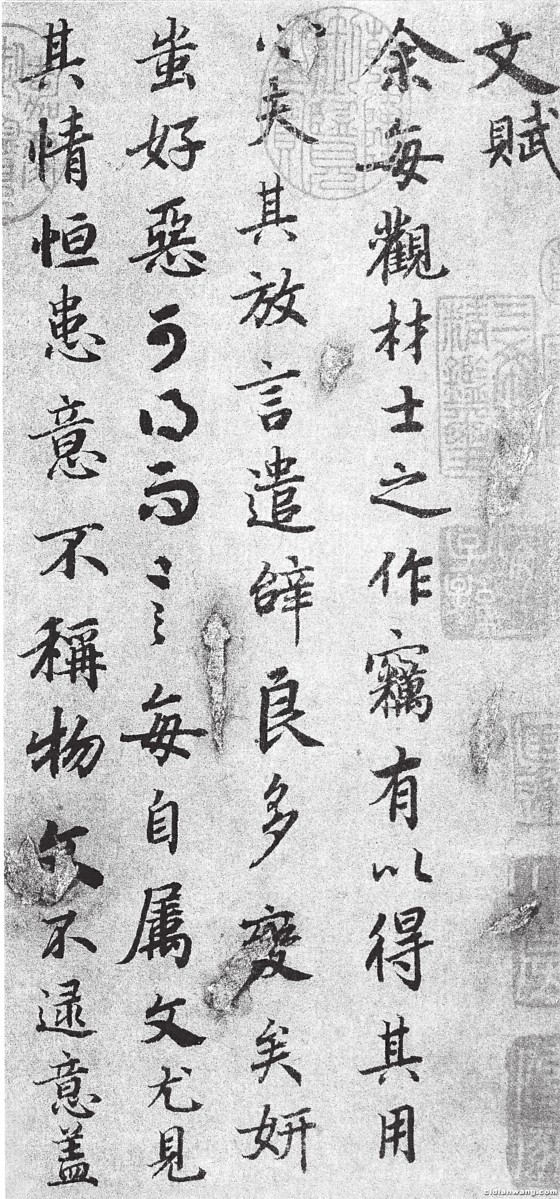 文賦
余每觀材士之作竊有以得其用
心夫其放言遣辭良多變矣妍
蚩好惡可得而言每自属文尤見
其情恒患意不稱物文不逮意盖
三希堂精鑑璽
cidianwang.com